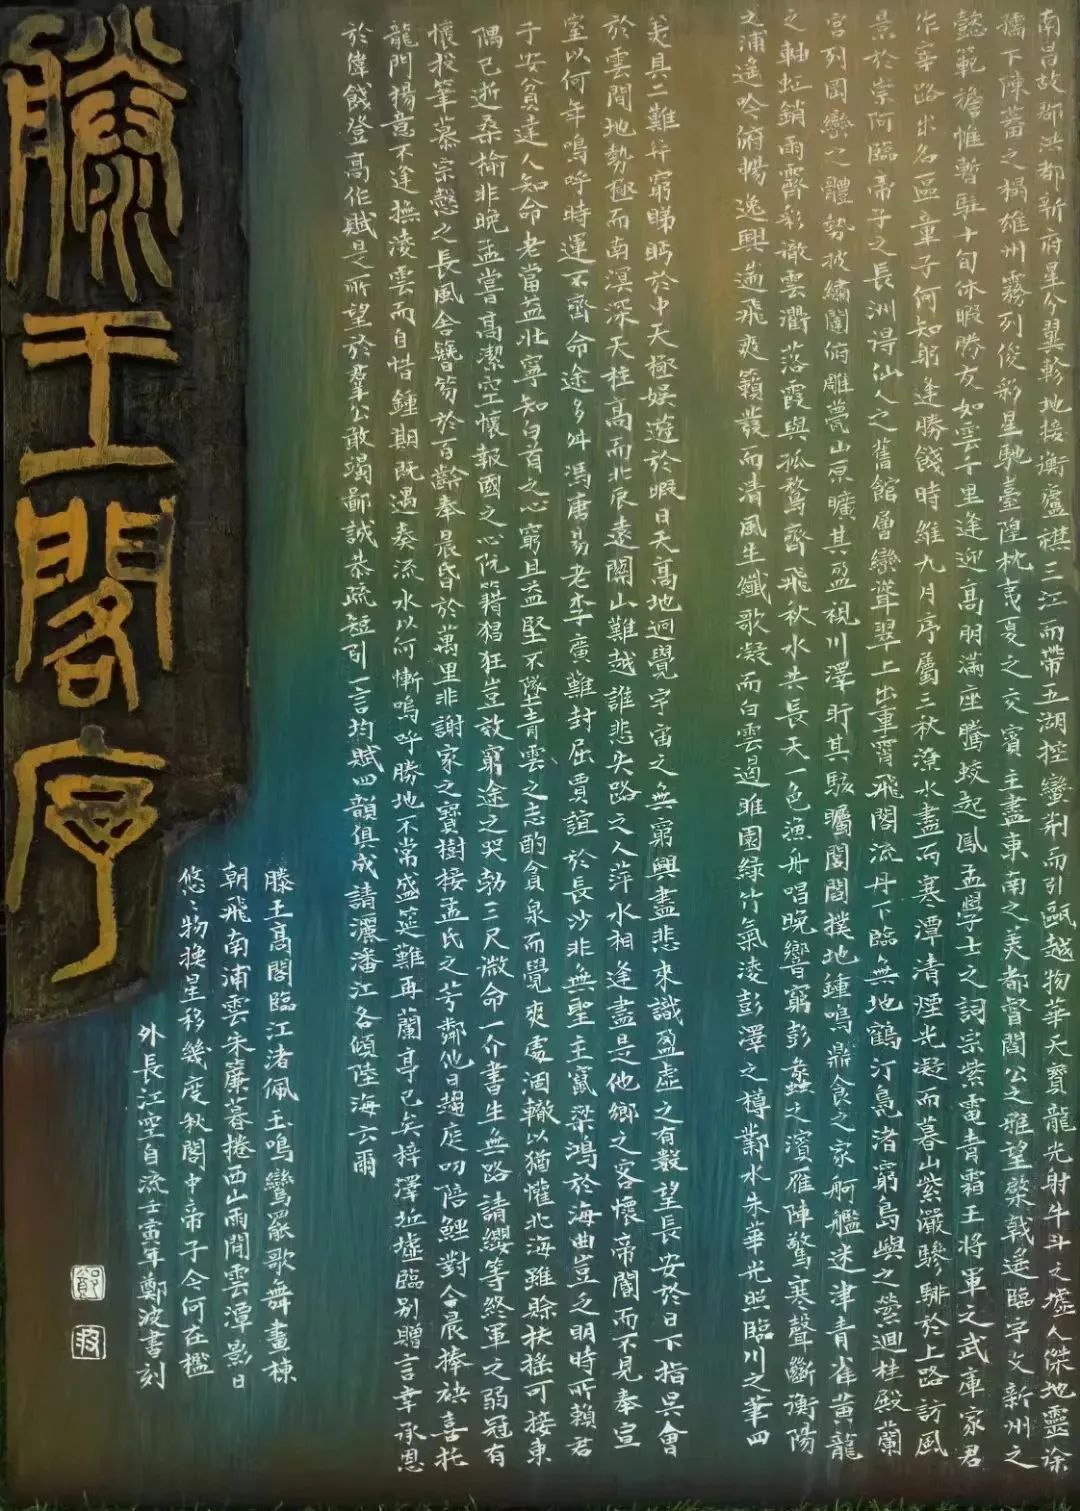 南昌故郡洪都新府星分翼軫地接衡廬襟三江而帶五湖控蠻荊而引甌越物華天寶龍光射牛斗之墟人傑地靈徐
孺下陳蕃之榻雄州霧列俊彩星馳臺隍枕夷夏之交賓主盡東南之美都督閻公之雅望棨戟遙臨宇文新州之
懿範襜帷暫駐十旬休暇勝友如雲千里逢迎高朋滿座騰蛟起鳳孟學士之詞宗紫電青霜王將軍之武庫家君
作宰路出名區童子何知躬逢勝餞時維九月序屬三秋潦水盡而寒潭清煙光凝而暮山紫儼驂騑於上路訪風
景於崇阿臨帝子之長洲得仙人之舊館層巒聳翠上出重霄飛閣流丹下臨無地鶴汀鳧渚窮島嶼之縈迴桂殿蘭
宮列岡巒之體勢披繡闥俯雕甍山原曠其盈視川澤盱其駭矚閭閻撲地鍾鳴鼎食之家舸艦迷津青雀黃龍
之軸虹銷雨霽彩徹雲衢落霞與孤鶩齊飛秋水共長天一色漁舟唱晚響窮彭蠡之濱雁陣驚寒聲斷衡陽
之浦遙吟俯暢逸興遄飛爽籟發而清風生纖歌凝而白雲遏睢園綠竹氣凌彭澤之樽鄴水朱華光照臨川之筆四
美具二難并窮睇眄於中天極娛遊於暇日天高地迥覺宇宙之無窮興盡悲來識盈虛之有數望長安於日下指吳會
於雲間地勢極而南溟深天柱高而北辰遠關山難越誰悲失路之人萍水相逢盡是他鄉之客懷帝閽而不見奉宣
室以何年嗚呼時運不齊命途多舛馮唐易老李廣難封屈賈誼於長沙非無聖主竄梁鴻於海曲豈乏明時所賴君
子安貧達人知命老當益壯寧知白首之心窮且益堅不墜青雲之志酌貪泉而覺爽處涸轍以猶懽北海雖賒扶搖可接東
隅已逝桑榆非晚孟嘗高潔空懷報國之心阮籍猖狂豈效窮途之哭勃三尺微命一介書生無路請纓等終軍之弱冠有
懷投筆慕宗愨之長風舍簪笏於百齡奉晨昏於萬里非謝家之寶樹接孟氏之芳鄰他日趨庭叨陪鯉對今晨捧袂喜托
龍門楊意不逢撫凌雲而自惜鍾期既遇奏流水以何慚嗚呼勝地不常盛筵難再蘭亭已矣梓澤坵墟臨別贈言幸承恩
於偉餞登高作賦是所望於羣公敢竭鄙誠恭疏短引一言均賦四韻俱成請灑潘江各傾陸海云爾
滕王高閣臨江渚佩玉鳴鸞罷歌舞畫棟
朝飛南浦雲朱簾暮捲西山雨閒雲潭影日
悠悠物換星移幾度秋閣中帝子今何在檻
外長江空自流壬寅年鄭波書刻
滕王閣序